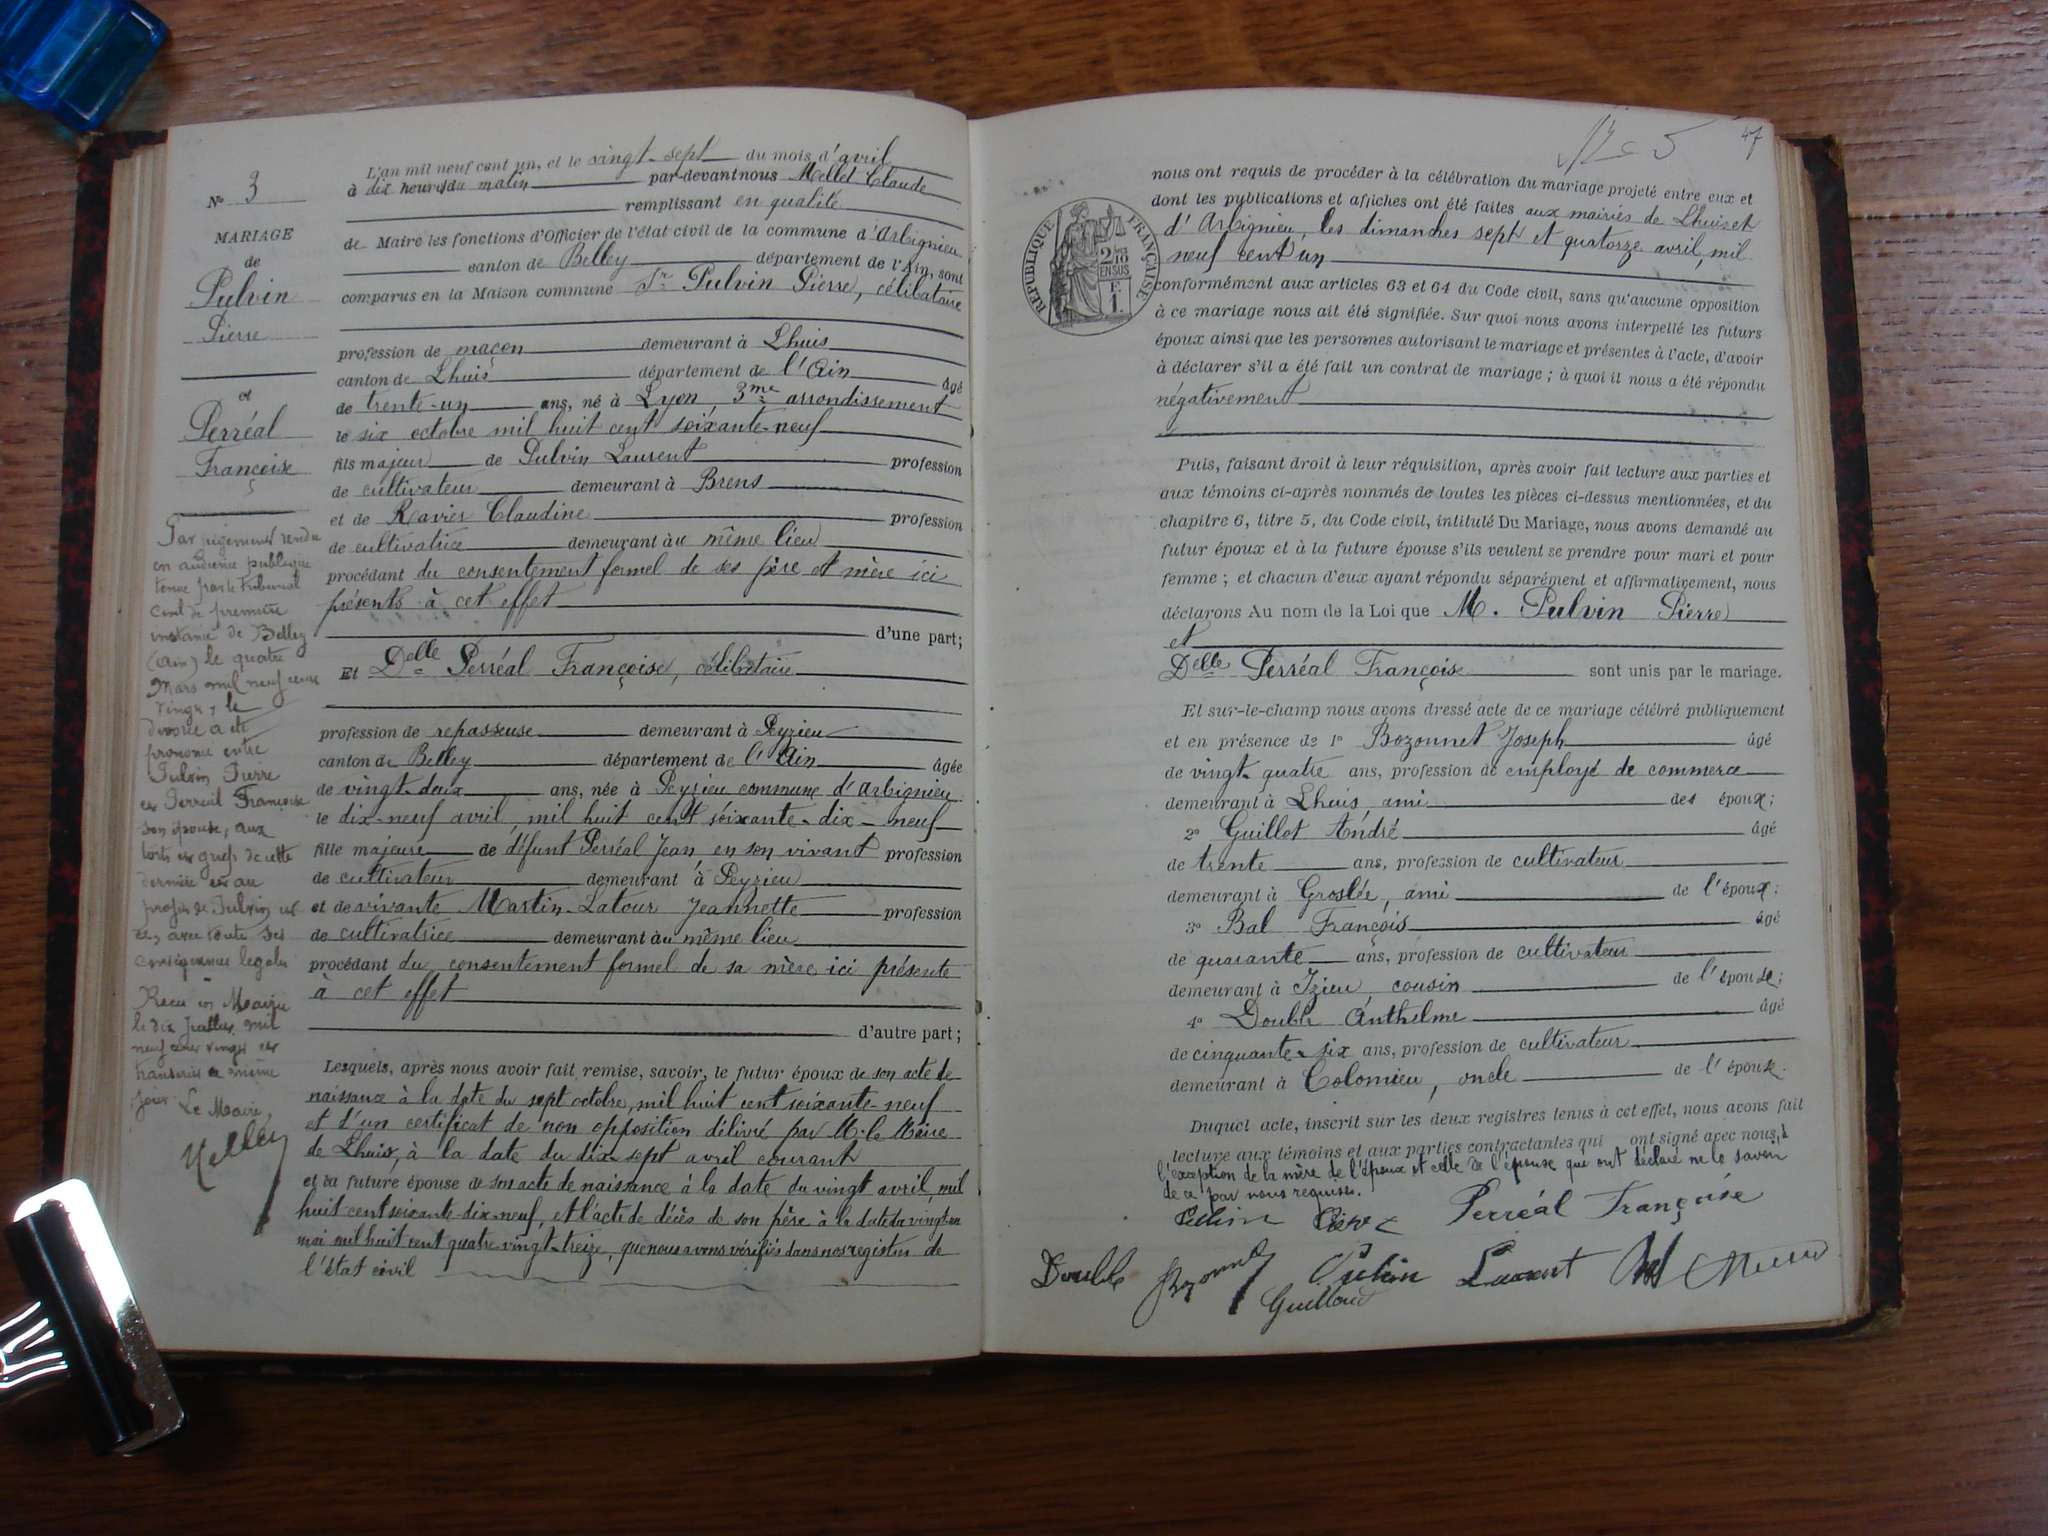 N° 3
MARIAGE
de
Pulvin
Pierre
et
Perréal
Françoise
Par jugement rendu
en audience publique
tenue par le tribunal
civil de première
instance de Belley
(Ain) le quatre
Mars mil neuf cent
vingt, le
divorce a été
prononcé entre
Pulvin Pierre
et Perréal Françoise
son épouse, aux
torts et griefs de cette
dernière et au
profit de Pulvin et
ce, avec toutes ses
conséquences légales
Reçu en Mairie
le dix juillet mil
neuf cent vingt et
transcrit le même
jour. Le Maire,
L'an mil neuf cent un, et le vingt-sept du mois d'avril
à dix heures du matin par-devant nous Mellet Claude
remplissant en qualité
de Maire les fonctions d'Officier de l'état civil de la commune d'Arbignieu
canton de Belley département de l'Ain, sont
comparus en la Maison commune Sr Pulvin Pierre, célibataire
profession de maçon demeurant à Lhuis
canton de Lhuis département de l'Ain âgé
de trente-un ans, né à Lyon, 3me arrondissement
le six octobre mil huit cent soixante-neuf
fils majeur de Pulvin Laurent profession
de cultivateur demeurant à Brens
et de Ravier Claudine profession
de cultivatrice demeurant au même lieu
procédant du consentement formel de ses père et mère ici
présents à cet effet
d'une part;
Et Delle Perréal Françoise, célibataire
profession de repasseuse demeurant à Peyzieu
canton de Belley département de l'Ain âgée
de vingt-deux ans, née à Peyzieu commune d'Arbignieu
le dix-neuf avril mil huit cent soixante-dix-neuf
fille majeure de défunt Perréal Jean en son vivant profession
de cultivateur demeurant à Peyzieu
et de vivante Martin-Latour Jeannette profession
de cultivatrice demeurant au même lieu
procédant du consentement formel de sa mère ici présente
à cet effet
d'autre part;
Lesquels, après nous avoir fait remise, savoir, le futur époux de son acte de
naissance à la date du sept octobre, mil huit cent soixante-neuf
et d'un certificat de non opposition délivré par M. le Maire
de Lhuis, à la date du dix-sept avril courant
et la future épouse de son acte de naissance à la date du vingt avril, mil
huit cent soixante-dix-neuf, et l'acte de décès de son père à la date du vingt-un
mai mil huit cent quatre-vingt-treize, que nous avons vérifiés dans nos registres de
l'état civil
N° 5
47
RÉPUBLIQUE FRANÇAISE
2/10 EN SUS
F. 1.
nous ont requis de procéder à la célébration du mariage projeté entre eux et
dont les publications et affiches ont été faites aux mairies de Lhuis et
d'Arbignieu, les dimanches sept et quatorze avril, mil
neuf cent un
conformément aux articles 63 et 64 du Code civil, sans qu'aucune opposition
à ce mariage nous ait été signifiée. Sur quoi nous avons interpellé les futurs
époux ainsi que les personnes autorisant le mariage et présentes à l'acte, d'avoir
à déclarer s'il a été fait un contrat de mariage; à quoi il nous a été répondu
négativement
Puis, faisant droit à leur réquisition, après avoir fait lecture aux parties et
aux témoins ci-après nommés de toutes les pièces ci-dessus mentionnées, et du
chapitre 6, titre 5, du Code civil, intitulé Du Mariage, nous avons demandé au
futur époux et à la future épouse s'ils veulent se prendre pour mari et pour
femme; et chacun d'eux ayant répondu séparément et affirmativement, nous
déclarons Au nom de la Loi que M. Pulvin Pierre
et
Delle Perréal Françoise sont unis par le mariage.
Et sur-le-champ nous avons dressé acte de ce mariage célébré publiquement
et en présence de 1° Bozonnet Joseph âgé
de vingt-quatre ans, profession de employé de commerce
demeurant à Lhuis, ami des époux;
2° Guillot André âgé
de trente ans, profession de cultivateur
demeurant à Groslée, ami de l'époux;
3° Bal François âgé
de quarante ans, profession de cultivateur
demeurant à Izieu, cousin de l'épouse;
4° Double Anthelme âgé
de cinquante-six ans, profession de cultivateur
demeurant à Colomieu, oncle de l'épouse.
Duquel acte, inscrit sur les deux registres tenus à cet effet, nous avons fait
lecture aux témoins et aux parties contractantes qui ont signé avec nous, à
l'exception de la mère de l'époux et celle de l'épouse qui ont déclaré ne le savoir
de ce par nous requises.
Pulvin Pierre Perréal Françoise
Double Bozonnet Pulvin Laurent Bal
Guillot